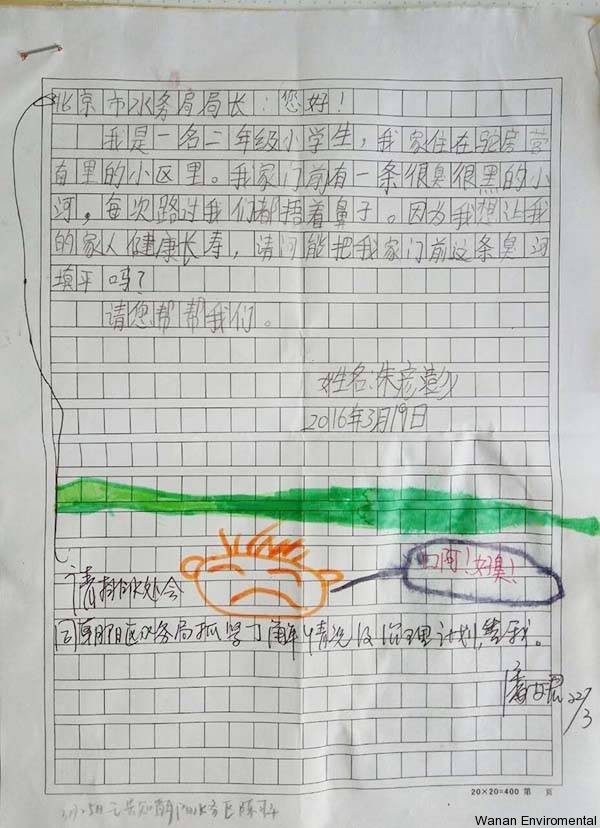 北京市水务局局长:您好!
我是一名二年级小学生,我家住在驼房营
百里的小区里。我家门前有一条很臭很黑的小
河。每次路过我们都捂着鼻子。因为我想让我
的家人健康长寿,请问能把我家门前这条臭河
填平吗?
请您帮帮我们。
姓名:朱彦澎
2016年3月19日
啊!好臭!
请排水处会
同朝阳区水务局抓紧了解情况及治理计划,告我。
22/3
20×20=400 第 页
Wanan Enviromental